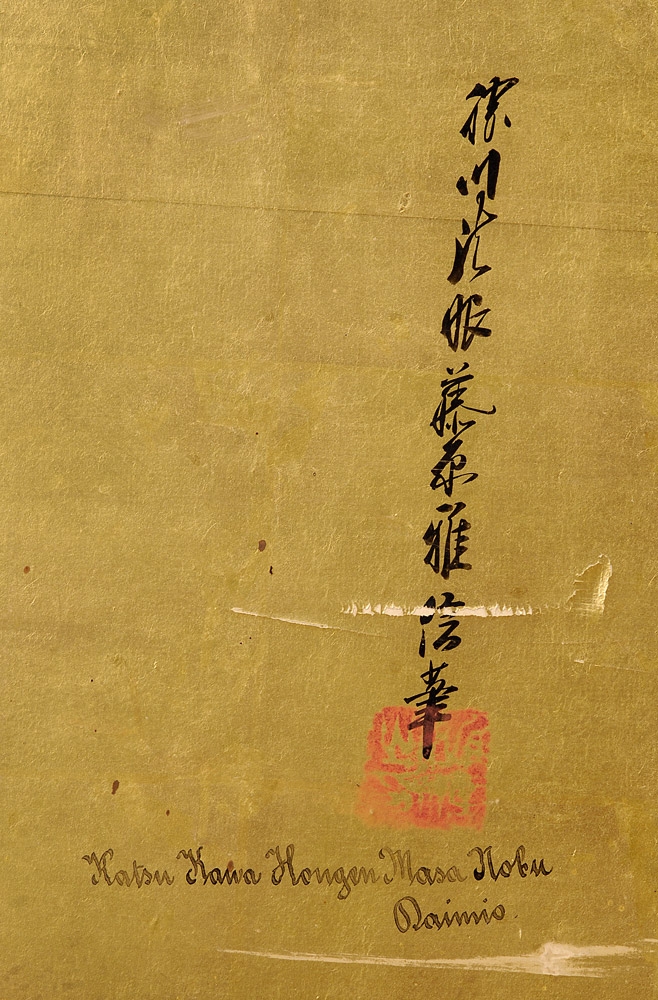 勝川法眼藤原雅信筆
Katsu Kawa Hongen Masa Nobu
Daimio.